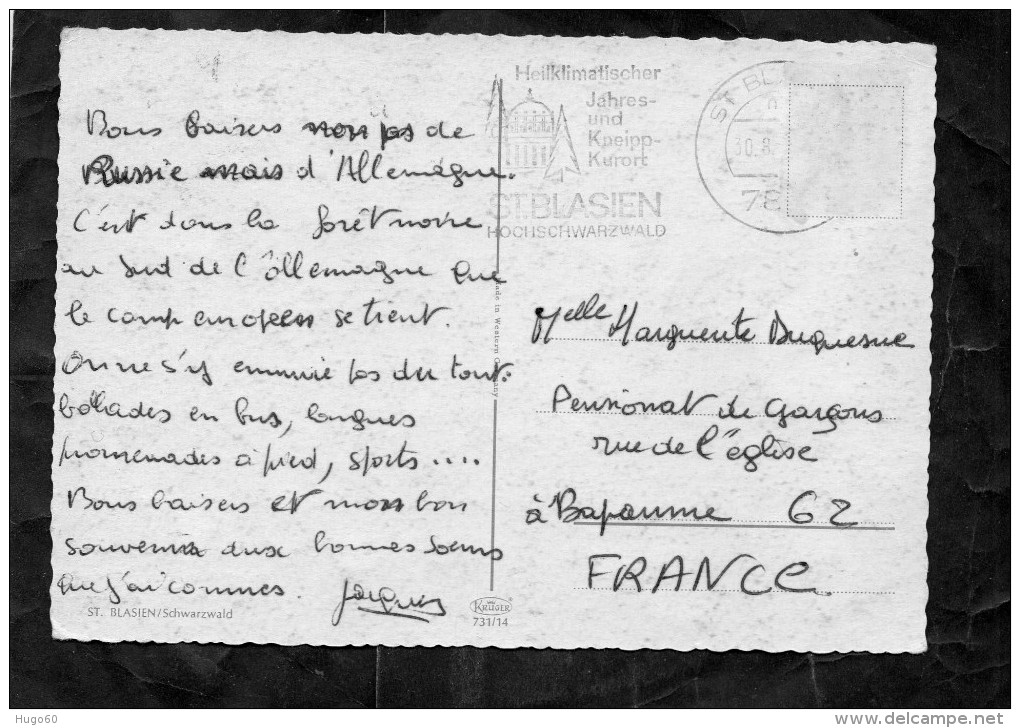 Heilklimatischer
Jahres-
und
Kneipp-
Kurort
ST.BLASIEN
HOCHSCHWARZWALD
ST BL
30.8
78
Bons baisers non pas de
Russie mais d'Allemagne.
C'est dans la forêt noire
au sud de l'Allemagne que
le camp européen se tient.
On ne s'y ennuie pas du tout.
balades en bus, longues
promenades à pied, sports ....
Bons baisers et mon bon
souvenir aux bonnes soeurs
que j'ai connues. Jacques
ST. BLASIEN/Schwarzwald
KRÜGER
731/14
Made in Western Germany
Melle Marguerite Duquesne
Pensionat de Garçons
rue de l'église
à Bapaume 62
FRANCE.
Hugo60
www.delcampe.net